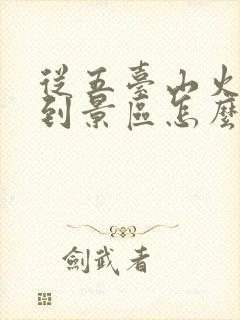 從五臺山火
到景區怎麼
劍武者